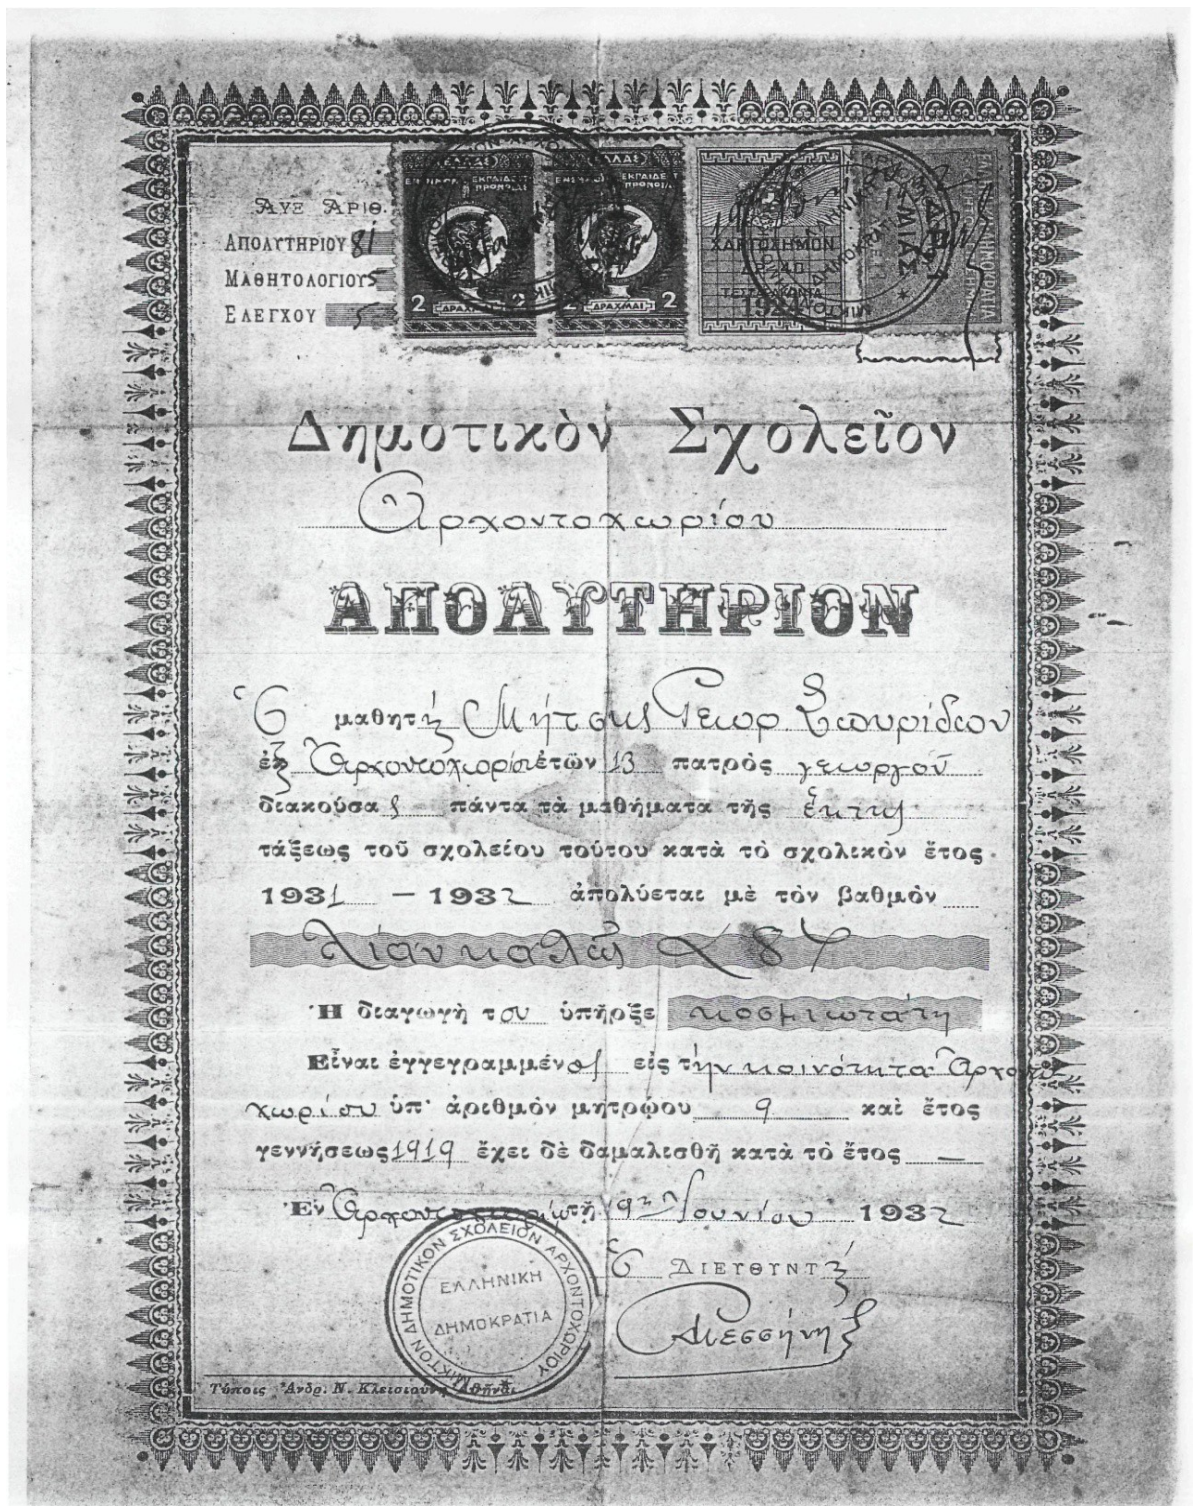 ΑΥΞ ΑΡΙΘ.
ΑΠΟΛΥΤΗΡΙΟΥ 81
ΜΑΘΗΤΟΛΟΓΙΟΥ 5
ΕΛΕΓΧΟΥ 5
ΕΛΛΑΣ
ΕΚΠΑΙΔΕΥΤ
ΠΡΟΝΟΙΑ
2 ΔΡΑΧΜΑΙ 2
ΕΛΛΑΣ
ΕΚΠΑΙΔΕΥΤ
ΠΡΟΝΟΙΑ
2 ΔΡΑΧΜΑΙ 2
ΧΑΡΤΟΣΗΜΟΝ
ΔΡ. 40
ΔΡ. 1
ΜΙΑΣ
Δημοτικὸν Σχολεῖον
Ἀρχοντοχωρίου
ΑΠΟΛΥΤΗΡΙΟΝ
Ὁ μαθητὴς Μήτσης Γεωρ. Σπυρίδων
ἐξ Ἀρχοντοχωρίου ἐτῶν 13 πατρὸς γεωργοῦ
διακούσας πάντα τὰ μαθήματα τῆς ἕκτης
τάξεως τοῦ σχολείου τούτου κατὰ τὸ σχολικὸν ἔτος
1931 – 1932 ἀπολύεται μὲ τὸν βαθμὸν
λίαν καλῶς 8
Ἡ διαγωγὴ του ὑπῆρξε κοσμιωτάτη
Εἶναι ἐγγεγραμμένος εἰς τὴν κοινότητα Ἀρχοντο
χωρίου ὑπ' ἀριθμὸν μητρώου 9 καὶ ἔτος
γεννήσεως 1919 ἔχει δὲ δαμαλισθῆ κατὰ τὸ ἔτος —
Ἐν Ἀρχοντοχωρίῳ τῇ 9ῃ Ἰουνίου 1932
Ὁ ΔΙΕΥΘΥΝΤὴς
ΜΙΚΤΟΝ ΔΗΜΟΤΙΚΟΝ ΣΧΟΛΕΙΟΝ ΑΡΧΟΝΤΟΧΩΡΙΟΥ
ΕΛΛΗΝΙΚΗ
ΔΗΜΟΚΡΑΤΙΑ
Τύποις Ἀνδρ. Ν. Κλεισιούνη Ἀθῆναι